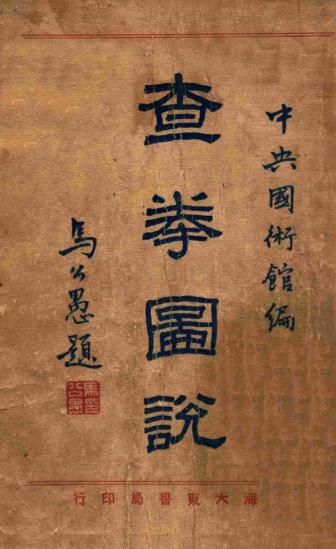 中央國術館編
查拳圖說
馬公愚題
海大東書局印行